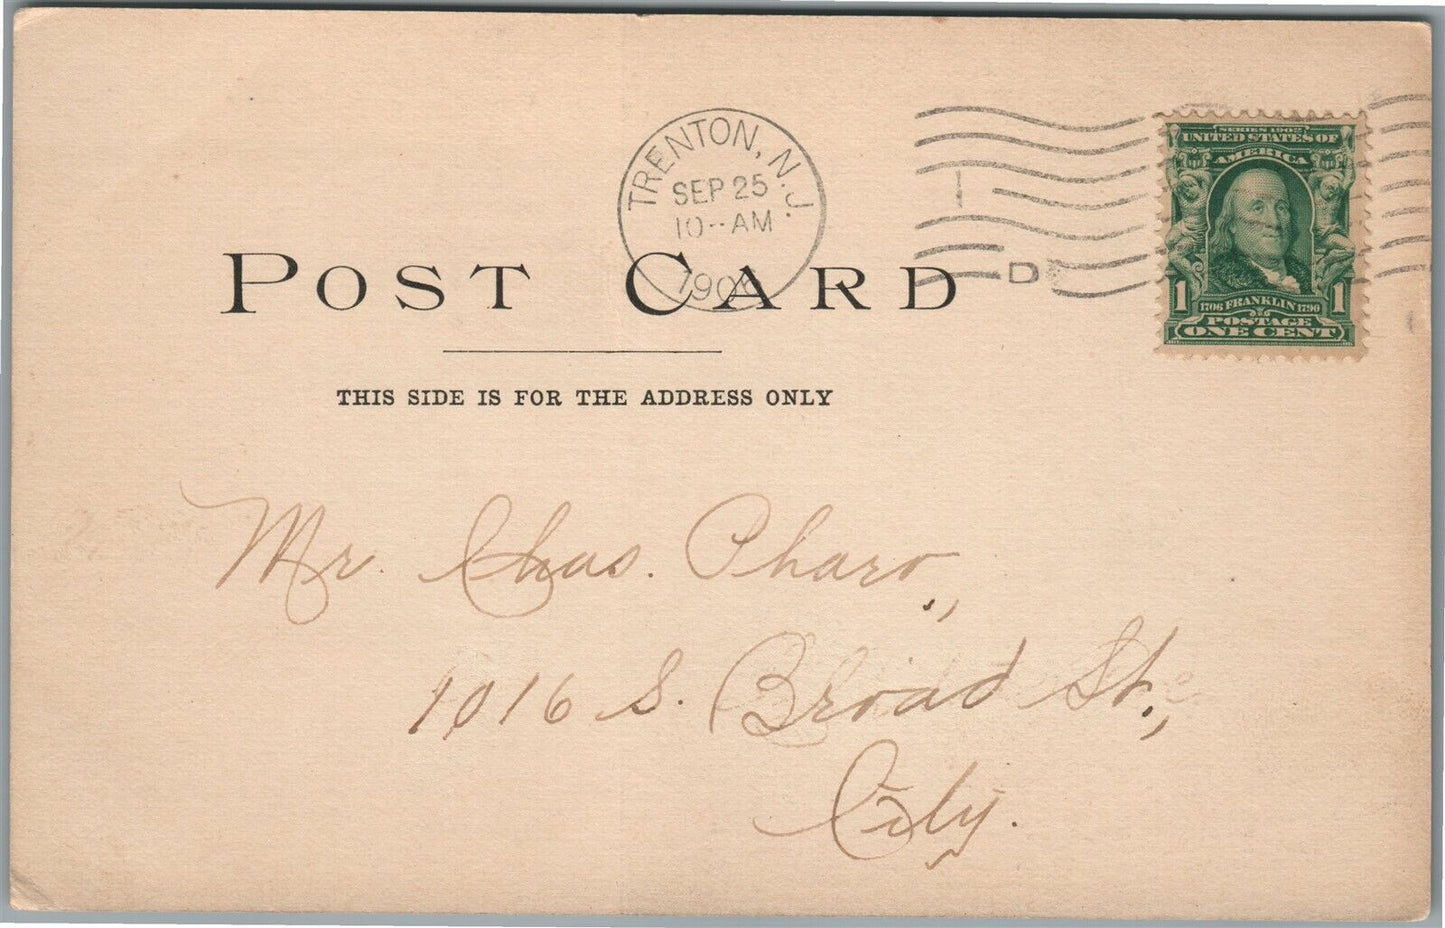 TRENTON, N.J.
SEP 25
10-AM
1906
D
SERIES 1902
UNITED STATES OF
AMERICA
1 1706 FRANKLIN 1790 1
POSTAGE
ONE CENT
POST CARD
THIS SIDE IS FOR THE ADDRESS ONLY
Mr. Chas. Pharo,
1016 S. Broad St.,
City.